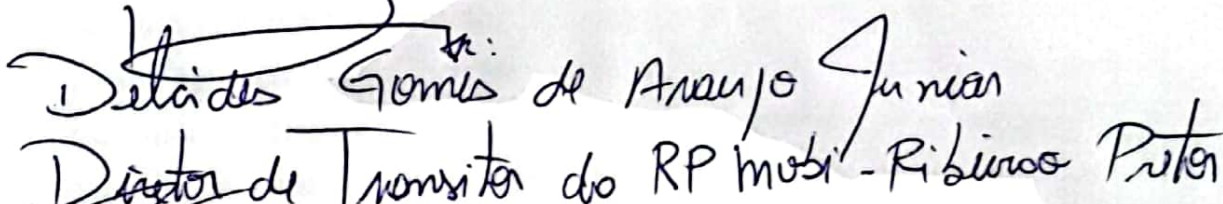 Jr.
Delcides Gomes de Araujo Junior
Diretor de Transito do RP mobi - Ribeirao Preto